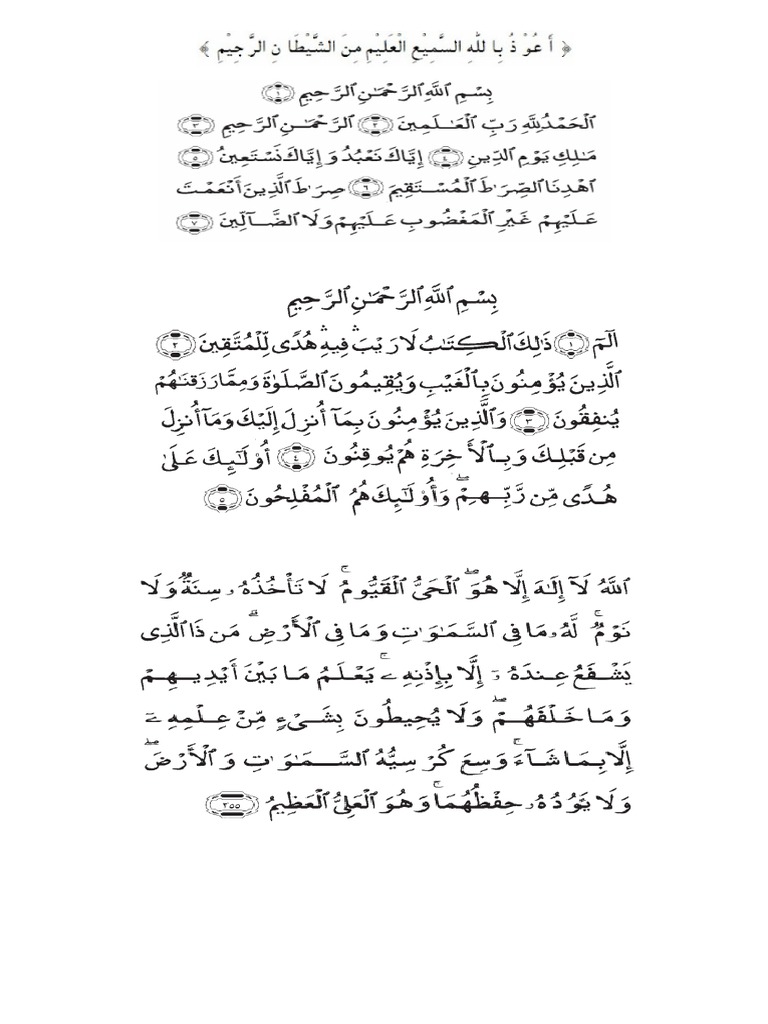 ﴿ أَعُوْذُ بِاللهِ السَّمِيْعِ الْعَلِيْمِ مِنَ الشَّيْطَانِ الرَّجِيْمِ ﴾
بِسْمِ ٱللَّهِ ٱلرَّحْمَٰنِ ٱلرَّحِيمِ ﴿١﴾
ٱلْحَمْدُ لِلَّهِ رَبِّ ٱلْعَٰلَمِينَ ﴿٢﴾ ٱلرَّحْمَٰنِ ٱلرَّحِيمِ ﴿٣﴾
مَٰلِكِ يَوْمِ ٱلدِّينِ ﴿٤﴾ إِيَّاكَ نَعْبُدُ وَإِيَّاكَ نَسْتَعِينُ ﴿٥﴾
ٱهْدِنَا ٱلصِّرَٰطَ ٱلْمُسْتَقِيمَ ﴿٦﴾ صِرَٰطَ ٱلَّذِينَ أَنْعَمْتَ
عَلَيْهِمْ غَيْرِ ٱلْمَغْضُوبِ عَلَيْهِمْ وَلَا ٱلضَّآلِّينَ ﴿٧﴾
بِسْمِ ٱللَّهِ ٱلرَّحْمَٰنِ ٱلرَّحِيمِ
الٓمٓ ﴿١﴾ ذَٰلِكَ ٱلْكِتَٰبُ لَا رَيْبَ ۛ فِيهِ ۛ هُدًى لِّلْمُتَّقِينَ ﴿٢﴾
ٱلَّذِينَ يُؤْمِنُونَ بِٱلْغَيْبِ وَيُقِيمُونَ ٱلصَّلَوٰةَ وَمِمَّا رَزَقْنَٰهُمْ
يُنفِقُونَ ﴿٣﴾ وَٱلَّذِينَ يُؤْمِنُونَ بِمَآ أُنزِلَ إِلَيْكَ وَمَآ أُنزِلَ
مِن قَبْلِكَ وَبِٱلْأَخِرَةِ هُمْ يُوقِنُونَ ﴿٤﴾ أُو۟لَٰٓئِكَ عَلَىٰ
هُدًى مِّن رَّبِّهِمْ ۖ وَأُو۟لَٰٓئِكَ هُمُ ٱلْمُفْلِحُونَ ﴿٥﴾
ٱللَّهُ لَآ إِلَٰهَ إِلَّا هُوَ ۖ ٱلْحَىُّ ٱلْقَيُّومُ ۚ لَا تَأْخُذُهُۥ سِنَةٌ وَلَا
نَوْمٌ ۚ لَّهُۥ مَا فِى ٱلسَّمَٰوَٰتِ وَمَا فِى ٱلْأَرْضِ ۗ مَن ذَا ٱلَّذِى
يَشْفَعُ عِندَهُۥٓ إِلَّا بِإِذْنِهِۦ ۚ يَعْلَمُ مَا بَيْنَ أَيْدِيهِمْ
وَمَا خَلْفَهُمْ ۖ وَلَا يُحِيطُونَ بِشَىْءٍ مِّنْ عِلْمِهِۦٓ
إِلَّا بِمَا شَآءَ ۚ وَسِعَ كُرْسِيُّهُ ٱلسَّمَٰوَٰتِ وَٱلْأَرْضَ ۖ
وَلَا يَـُٔودُهُۥ حِفْظُهُمَا ۚ وَهُوَ ٱلْعَلِىُّ ٱلْعَظِيمُ ﴿٢٥٥﴾